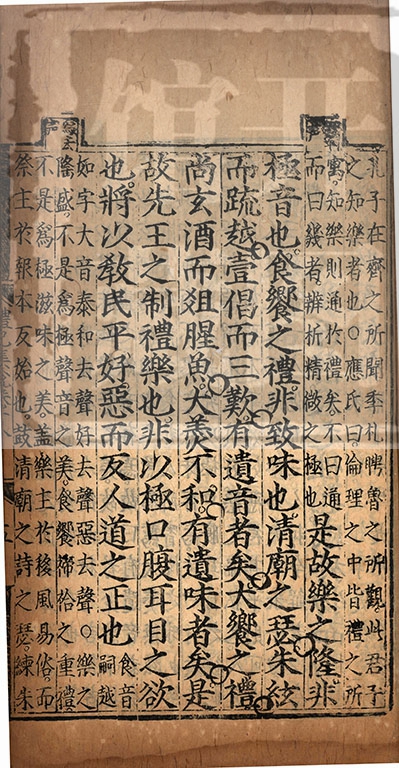 孔子在齊之所聞季札聘魯之所觀此君子
之知樂者也○應氏曰倫理之中皆禮之所
寓知樂則通於禮矣不曰通
而曰幾者辨析精微之極也
是故樂之隆非
極音也食饗之禮非致味也清廟之瑟朱絃
而疏越壹倡而三歎有遺音者矣大饗之禮
尚玄酒而俎腥魚大羹不和有遺味者矣是
故先王之制禮樂也非以極口腹耳目之欲
也將以教民平好惡而反人道之正也
食音
嗣越
如字大音泰和去聲好去聲惡去聲○樂之
隆盛不是為極聲音之美食饗禘祫之重禮
不是為極滋味之美蓋樂主於移風易俗而
祭主於報本反始也鼓清廟之詩之瑟練朱